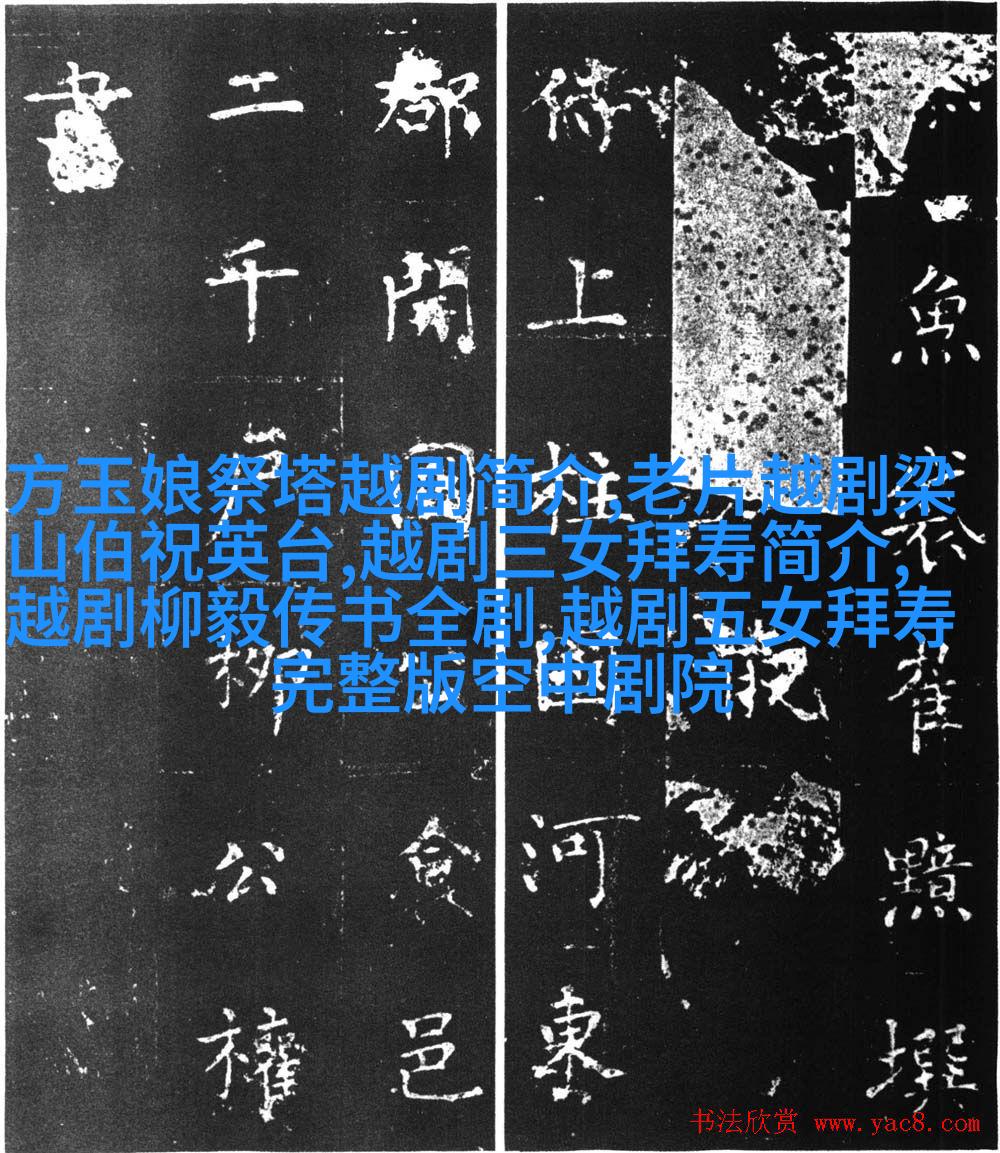 方玉娘祭塔越剧简介,老片越剧梁
山伯祝英台,越剧三女拜寿简介,
越剧柳毅传书全剧,越剧五女拜寿
完整版空中剧院
魚袋崔黯撰
侍上柱國河東
郡開國公食邑
二千戶柳公權
書
书法欣赏 www.yac8.com